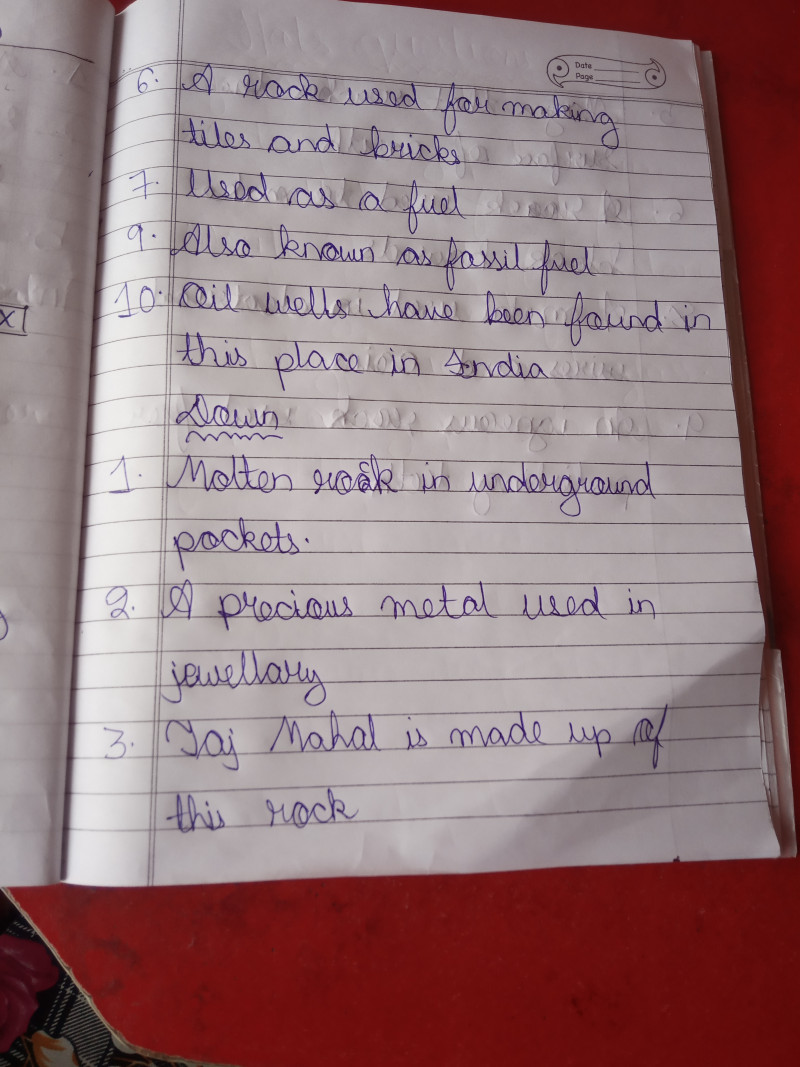 Date
Page
6. A rock used for making
tiles and bricks
7. Used as a fuel
9. Also known as fossil fuel
10. Oil wells have been found in
this place in India
Down
1. Molten rock in underground
pockets.
2. A precious metal used in
jewellary
3. Taj Mahal is made up of
this rock
X